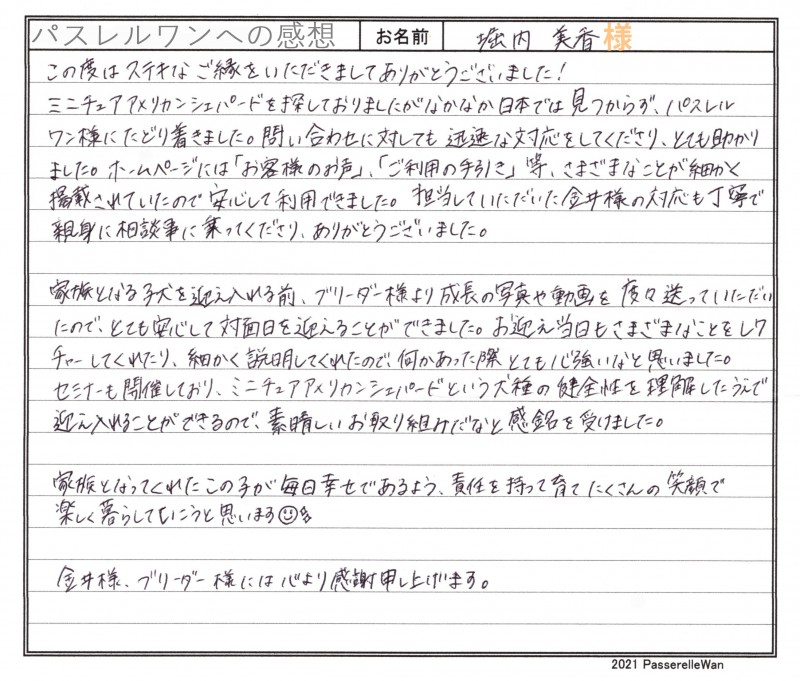 パスレルワンへの感想 お名前 堀内 美香 様
この度はステキなご縁をいただきましてありがとうございました!
ミニチュアアメリカンシェパードを探しておりましたがなかなか日本では見つからず、パスレル
ワン様にたどり着きました。問い合わせに対しても迅速な対応をしてくださり、とても助かり
ました。ホームページには「お客様のお声」、「ご利用の手引き」等、さまざまなことが細かく
掲載されていたので安心して利用できました。担当していただいた金井様の対応も丁寧で
親身に相談事に乗ってくださり、ありがとうございました。
家族となる子犬を迎え入れる前、ブリーダー様より成長の写真や動画を度々送っていただい
たので、とても安心して対面日を迎えることができました。お迎え当日もさまざまなことをレク
チャーしてくれたり、細かく説明してくれたので、何かあった際とても心強いなと思いました。
セミナーも開催しており、ミニチュアアメリカンシェパードという犬種の健全性を理解したうえで
迎え入れることができるので、素晴しいお取り組みだなと感銘を受けました。
家族となってくれたこの子が毎日幸せであるよう、責任を持って育てたくさんの笑顔で
楽しく暮らしていこうと思います☺
金井様、ブリーダー様には心より感謝申し上げます。
2021 PasserelleWan